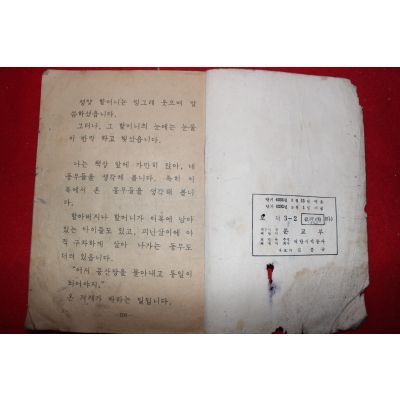 성양 할머니는 빙그레 웃으며 말
씀하셨읍니다.
그러나, 그 할머니의 눈에는 눈물
이 반짝 하고 빛났읍니다.
나는 책상 앞에 가만히 앉아, 내
동무들을 생각해 봅니다. 특히 이
북에서 온 동무들을 생각해 봅니
다.
할아버지나 할머니가 이북에 남아
있는 아이들도 있고, 피난살이에 아
직 구차하게 살아 나가는 동무도
더러 있읍니다.
"어서 공산당을 몰아내고 통일이
되어야지."
온 겨레가 바라는 일입니다.
단기
단기
3-2
문교부